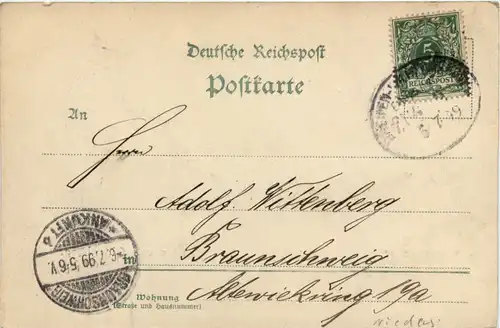 Deutsche Reichspost
Postkarte
5
REICHSPOST
6 7 99
An
Herrn
Adolf Wittenberg
ANKUNFT
6.7.99.5-6V.
BRAUNSCHWEIG
in
Braunschweig
Wohnung
(Straße und Hausnummer)
Altewiekring 19a